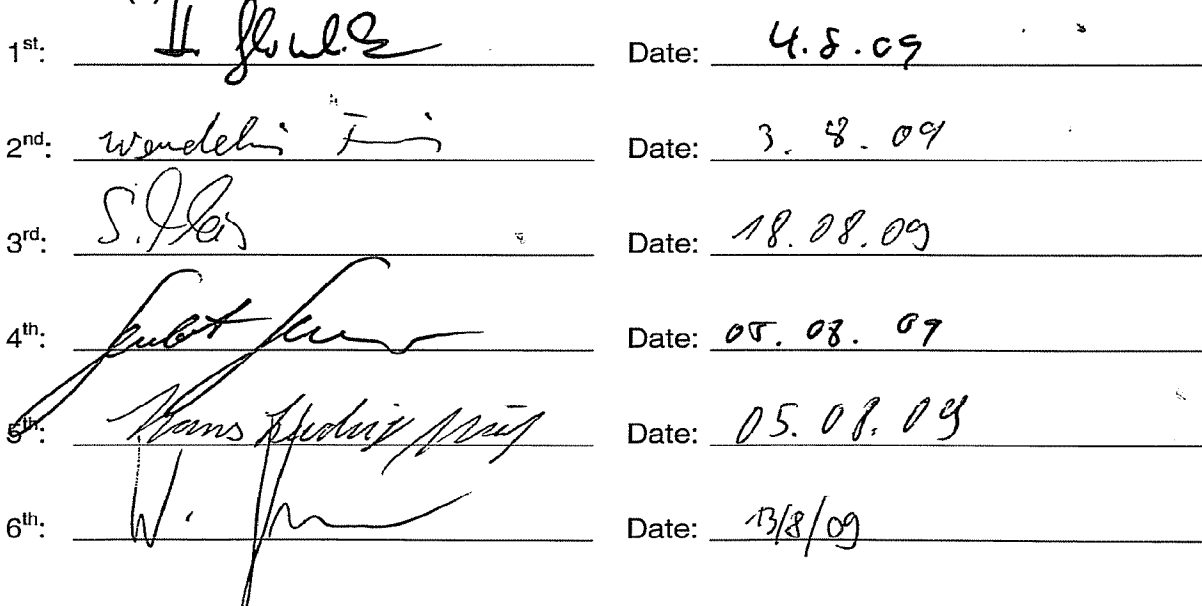 1st: Date: 4.8.09
2nd: Wendelin Date: 3. 8. 09
3rd: S. Date: 18.08.09
4th: Date: 05. 08. 09
5th: Hans Ludwig Date: 05.08.09
6th: W. Date: 13/8/09